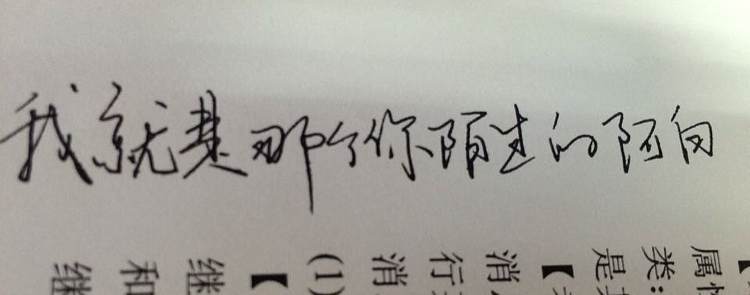 我就是那个你陌生的阿向
属
类:
是
【
消
行
消
(1)
【
继
和
继